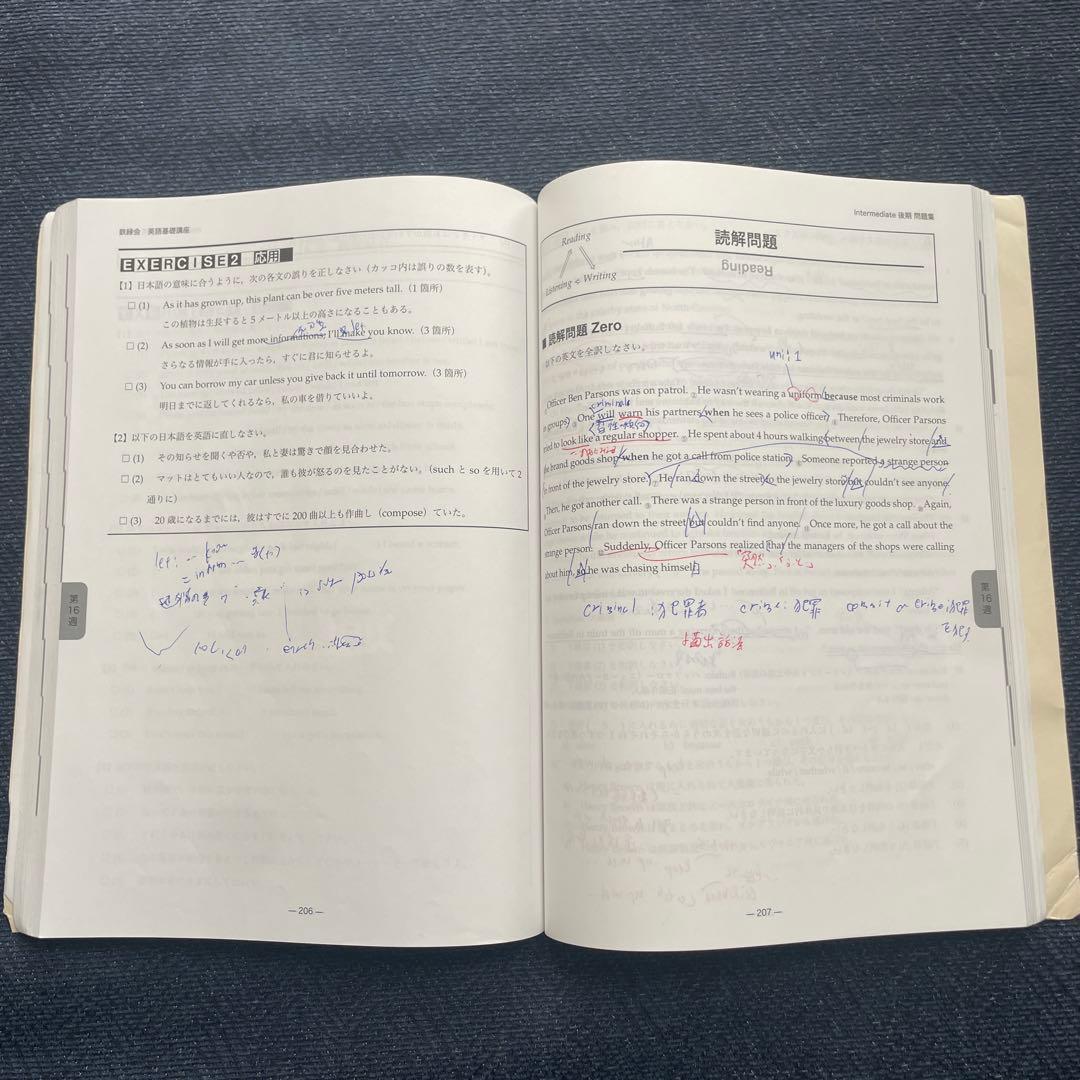 鉄緑会 英語基礎講座
EXERCISE2 応用
【1】日本語の意味に合うように，次の各文の誤りを正しなさい（カッコ内は誤りの数を表す）。
□ (1) As it has grown up, this plant can be over five meters tall.（1 箇所）
この植物は生長すると 5 メートル以上の高さになることもある。
let
□ (2) As soon as I will get more informations, I'll make you know.（3 箇所）
さらなる情報が手に入ったら，すぐに君に知らせるよ。
□ (3) You can borrow my car unless you give back it until tomorrow.（3 箇所）
明日までに返してくれるなら，私の車を借りていいよ。
【2】以下の日本語を英語に直しなさい。
□ (1) その知らせを聞くや否や，私と妻は驚きで顔を見合わせた。
□ (2) マットはとてもいい人なので，誰も彼が怒るのを見たことがない。（such と so を用いて 2
通りに）
□ (3) 20 歳になるまでには，彼はすでに 200 曲以上も作曲し（compose）ていた。
let: know
= inform
第16週
— 206 —
Intermediate 後期 問題集
Reading
Listening
Writing
読解問題
■ 読解問題 Zero
以下の英文を全訳しなさい。
uni: 1
Officer Ben Parsons was on patrol. He wasn't wearing a uniform because most criminals work
criminals
in groups. One will warn his partners when he sees a police officer. Therefore, Officer Parsons
tried to look like a regular shopper. He spent about 4 hours walking between the jewelry store and
the brand goods shop when he got a call from police station. Someone reported a strange person
in front of the jewelry store. He ran down the street to the jewelry store but couldn't see anyone.
Then, he got another call. There was a strange person in front of the luxury goods shop. Again,
Officer Parsons ran down the street but couldn't find anyone. Once more, he got a call about the
strange person. Suddenly, Officer Parsons realized that the managers of the shops were calling
about him, so he was chasing himself.
criminal : 犯罪者 crime : 犯罪 commit a crime : 犯罪
を犯す
描出話法
第16週
— 207 —